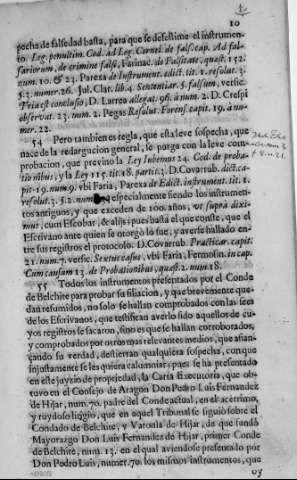 10
pecha de falsedad basta, para que se desestime el instrumen-
to. Leg. penultim. Cod. ad Leg. Cornel. de fals. cap. Ad fal-
sariorum, de crimine falsi, Farinac. de Falsitate, quæst. 152.
num. 10. & 23. Parexa de Instrument. edict. tit. 2. resolut. 3.
§. 3. numer. 26. Jul. Clar. lib. 4. Sententiar. §. falsum, versic.
Pria est conclusio, D. Larrea allegat. 96. à num. 2. D. Crespi
observat. 23. num. 2. Pegas Resolut. Forens. capit. 19. à nu-
mer. 22.
54 Pero tambien es regla, que esta leve sospecha, que
nace de la redarguicion general, se purga con la leve com-
probacion, que previno la Ley Iubemus 24. Cod. de proba-
tionibus, y la Ley 115. tit. 18. partit. 3. D. Covarrub. dict. ca-
pit. 19. num. 9. vbi Faria, Parexa de Edict. instrument. tit. 1.
resolut. 3. §. 2. num. especialmente siendo los instrumen-
tos antiguos, y que exceden de 100. años, vt suprà dixi-
mus, cum Escobar, & alijs: pues basta el que conste, que el
Escrivano ante quien se otorgò lo fue, y averse hallado en-
tre sus registros el protocolo. D. Covarrub. Practicar. capit.
21. num. 7. versic. Sextus casus, vbi Faria, Fermosin. in cap.
Cum causam 13. de Probationibus, quæst. 2. num. 18.
55 Todos los instrumentos presentados por el Conde
de Belchite para probar su filiacion, y que brevemente que-
dan resumidos, no solo se hallan comprobados con las fees
de los Escrivanos, que testifican averlo sido aquellos de cu-
yos registros se sacaron, sino es que se hallan corroborados,
y comprobados por otros mas relevantes medios, que afian-
çando su verdad, destierran qualquiera sospecha, conque
injustamente se les quiera calumniar; pues se ha presentado
en este juyzio de propiedad, la Carta Executoria, que ob-
tuvo en el Consejo de Aragon Don Pedro Luis Fernandez
de Hijar, num. 70. padre del Conde actual, en el acerrimo,
y ruydoso litigio, que en aquel Tribunal se siguiò sobre el
Condado de Belchite, y Varonia de Hijar, da que fundò
Mayorazgo Don Luis Fernandez de Hijar, primer Conde
de Belchite, num. 13. en el qual aviendose presentado por
Don Pedro Luis, numer. 70. los mismos instrumentos, que